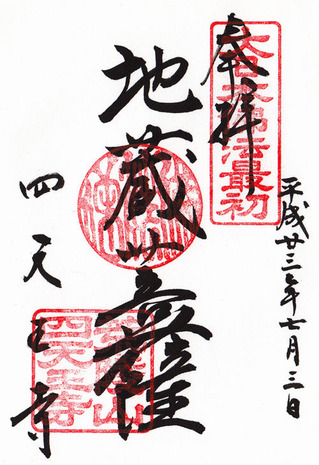 奉拝
大日本佛法最初
平成廿三年七月三日
地蔵𦬇霊
四天王寺
荒陵山
四天王寺